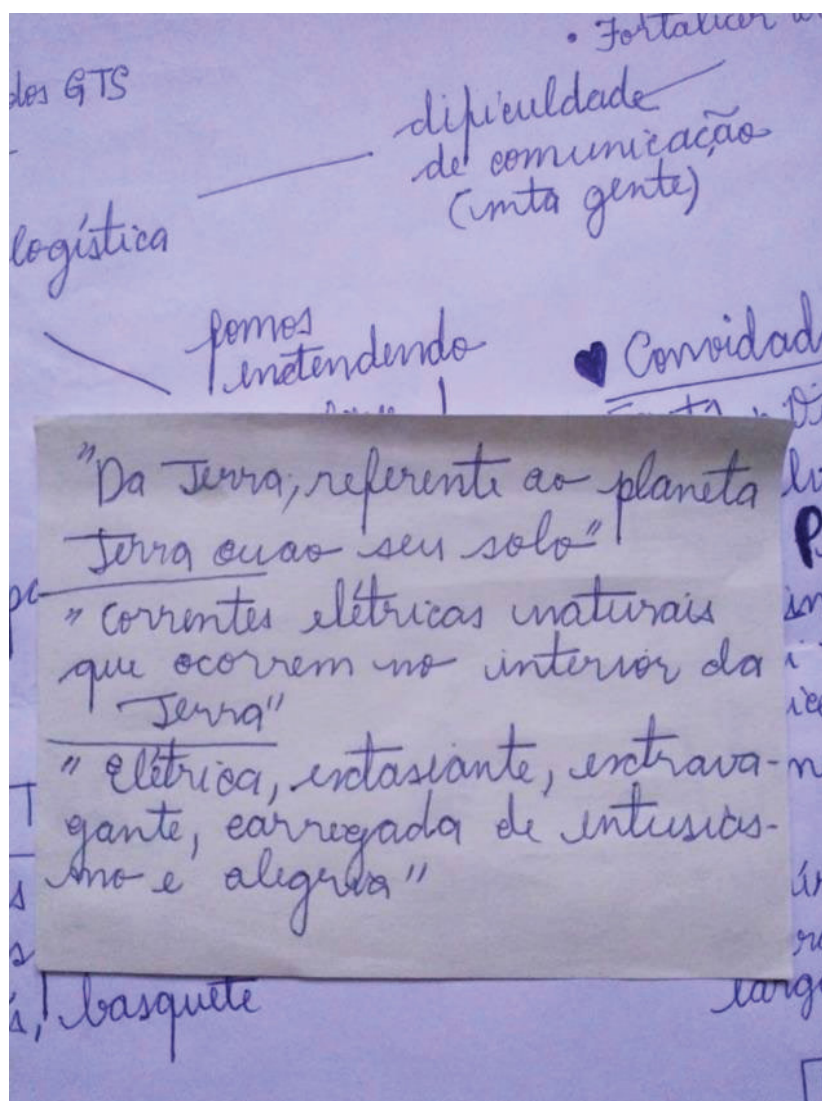 • Fortalecer
dos GTS
dificuldade
de comunicação
(mta gente)
logística
fomos
entendendo
♥ Convidad
"Da Terra, referente ao planeta
Terra ou ao seu solo"
"Correntes elétricas naturais
que ocorrem no interior da
Terra"
"Elétrica, extasiante, extrava-
gante, carregada de entusias-
mo e alegria"
basquete
larg